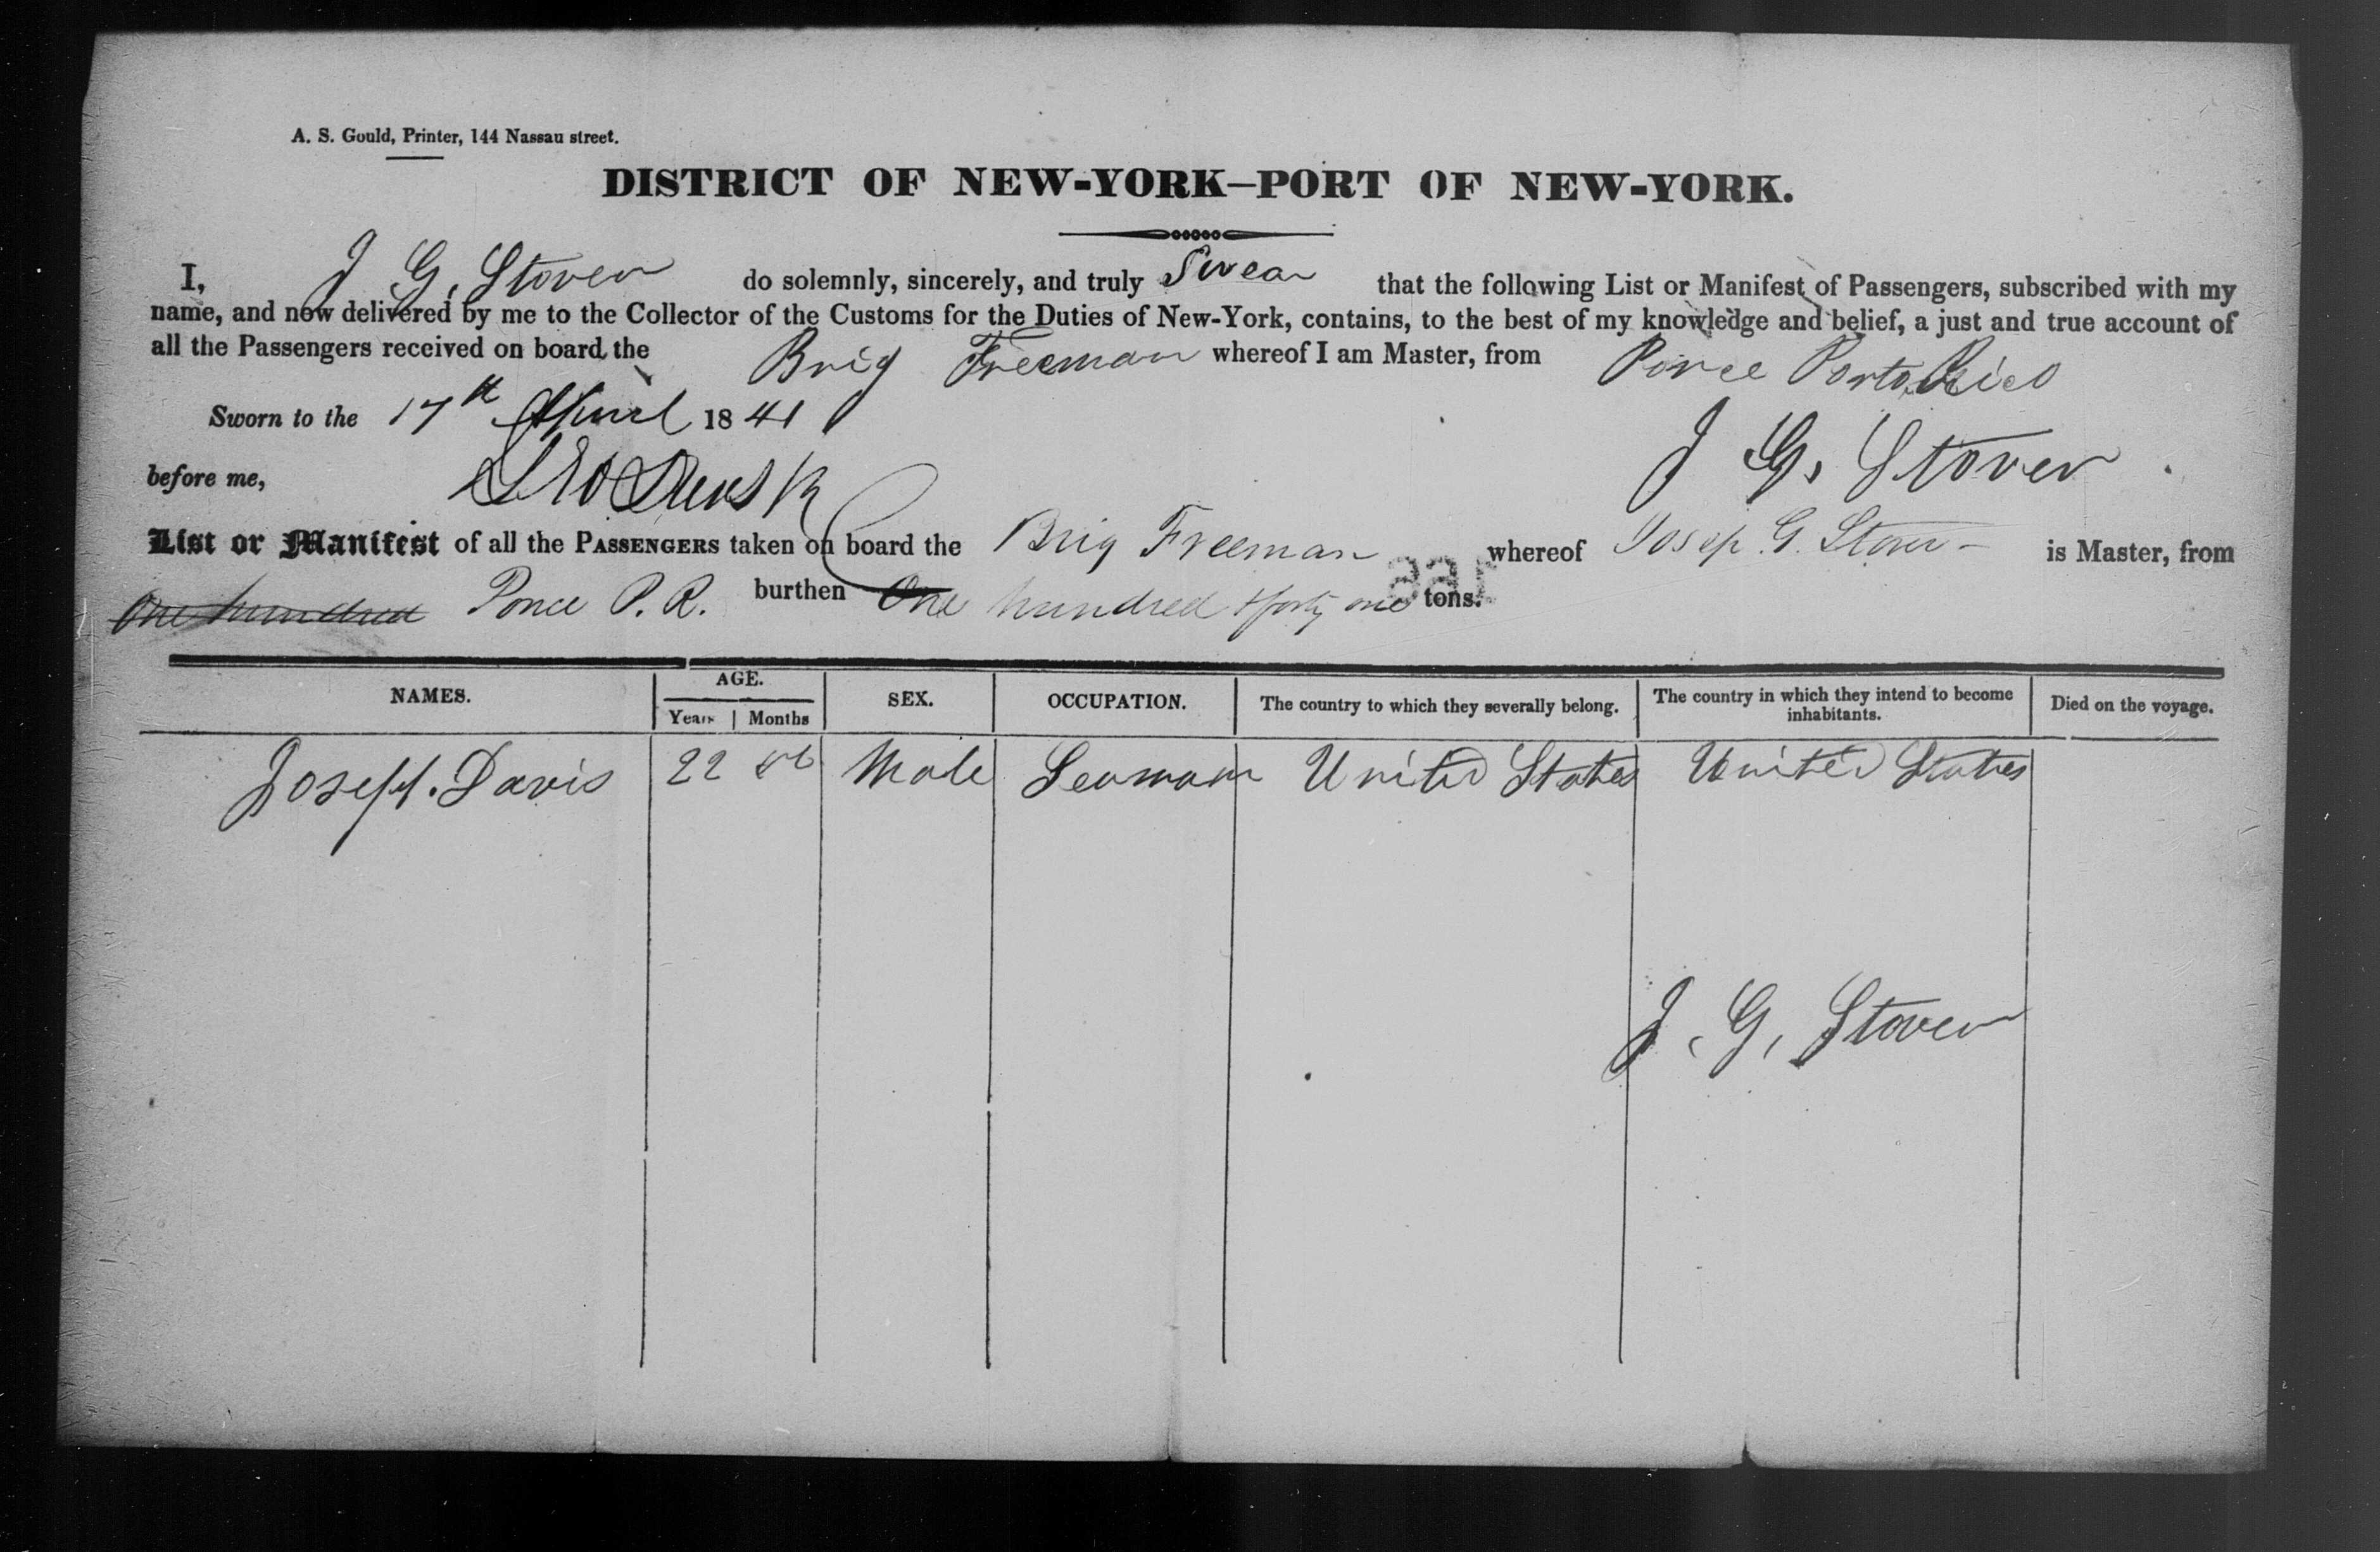 A. S. Gould, Printer, 144 Nassau street.
DISTRICT OF NEW-YORK—PORT OF NEW-YORK.
I, J G, Stover do solemnly, sincerely, and truly Swear that the following List or Manifest of Passengers, subscribed with my
name, and now delivered by me to the Collector of the Customs for the Duties of New-York, contains, to the best of my knowledge and belief, a just and true account of
all the Passengers received on board the Brig Freeman whereof I am Master, from Ponce Porto Rico
Sworn to the 17th April 1841
J G, Stover
before me,
List or Manifest of all the PASSENGERS taken on board the Brig Freeman whereof Josep. G. Stover is Master, from
One hundred Ponce P. R. burthen One hundred & forty one tons.
NAMES. AGE. Years Months SEX. OCCUPATION. The country to which they severally belong. The country in which they intend to become inhabitants. Died on the voyage.
Joseph. Davis 22 Male Seaman United States United States
J. G, Stover